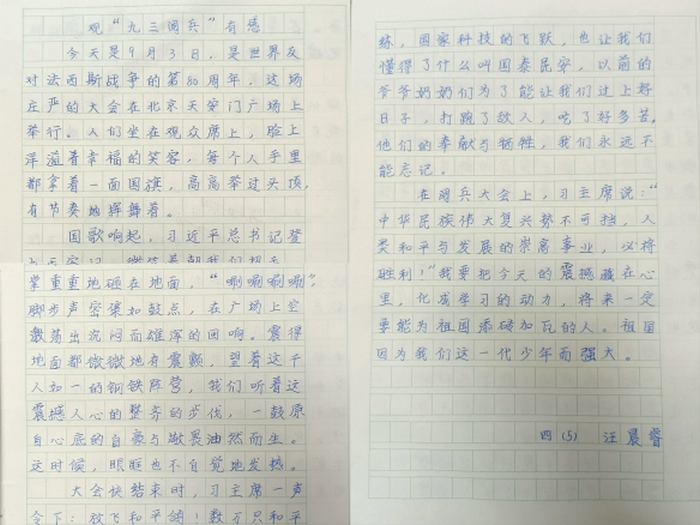 观“九三阅兵”有感
今天是9月3日，是世界反
对法西斯战争的第80周年，这场
庄严的大会在北京天安门广场上
举行。人们坐在观众席上，脸上
洋溢着幸福的笑容，每个人手里
都拿着一面国旗，高高举过头顶，
有节奏地挥舞着。
国歌响起，习近平总书记登
掌重重地砸在地面，“唰唰唰唰”，
脚步声密集如鼓点，在广场上空
激荡出沉闷而雄浑的回响。震得
地面都微微地有震颤，望着这千
人如一的钢铁阵营，我们听着这
震撼人心的整齐的步伐，一股原
自心底的自豪与敬畏油然而生。
这时候，眼眶也不自觉地发热。
大会快结束时，习主席一声
令下：放飞和平鸽！数万只和平
练，国家科技的飞跃，也让我们
懂得了什么叫国泰民安，以前的
爷爷奶奶们为了能让我们过上好
日子，打跑了敌人，吃了好多苦，
他们的奉献与牺牲，我们永远不
能忘记。
在阅兵大会上，习主席说：“
中华民族伟大复兴势不可挡，人
类和平与发展的崇高事业，必将
胜利！”我要把今天的震撼藏在心
里，化成学习的动力，将来一定
要能为祖国添砖加瓦的人。祖国
因为我们这一代少年而强大。
四（5） 汪晨睿